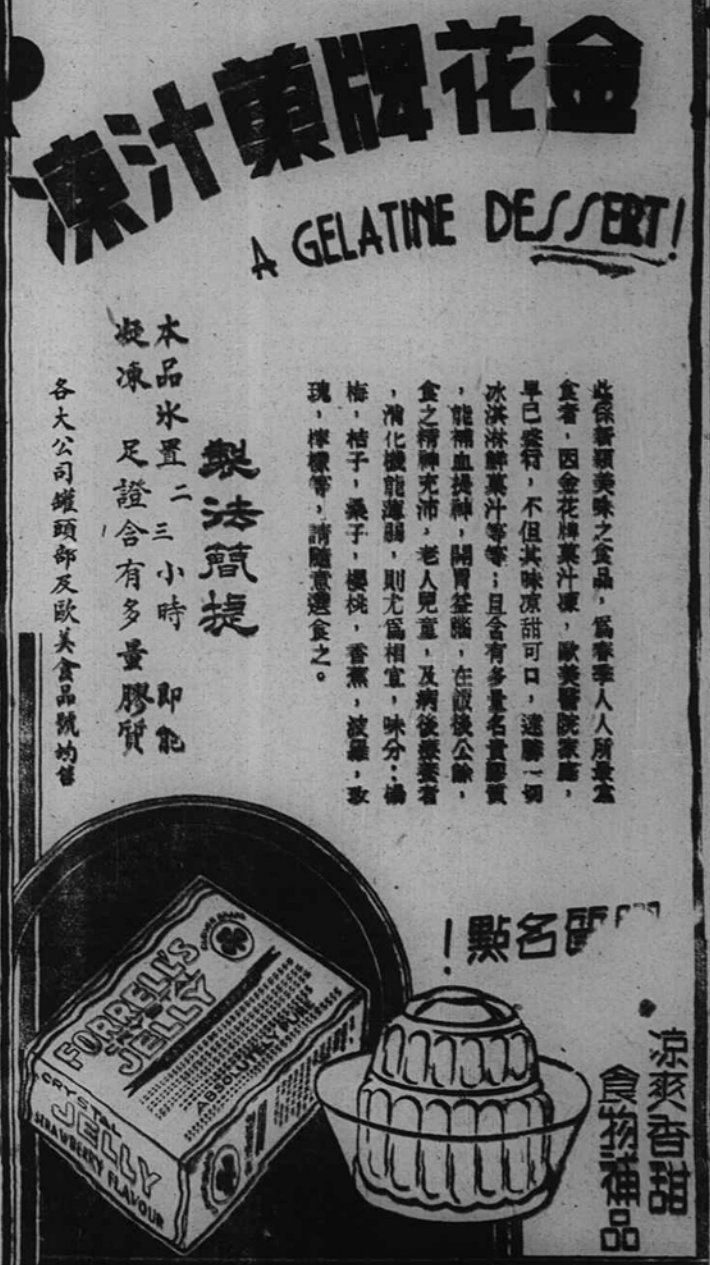 金花牌菓汁凍
A GELATINE DESSERT!
此係新穎美味之食品，爲春季人人所最宜
食者，因金花牌菓汁凍，歐美醫院家庭，
早已盛行，不但其味凉甜可口，遠勝一切
冰淇淋鮮菓汁等等；且含有多量名貴膠質
，能補血提神，開胃益腦，在飯後公餘，
食之精神充沛，老人兒童，及病後療養者
，消化機能薄弱，則尤爲相宜，味分：楊
梅，桔子，桑子，櫻桃，香蕉，波羅，玫
瑰，檸檬等，請隨意選食之。
製法簡捷
本品氷置二三小時 即能
凝凍 足證含有多量膠質
各大公司罐頭部及歐美食品號均售
名點！
凉爽香甜
食物補品
FORRELL'S
CRYSTAL
JELLY
ABSOLUTELY PURE
CRYSTAL
JELLY
STRAWBERRY FLAVOUR